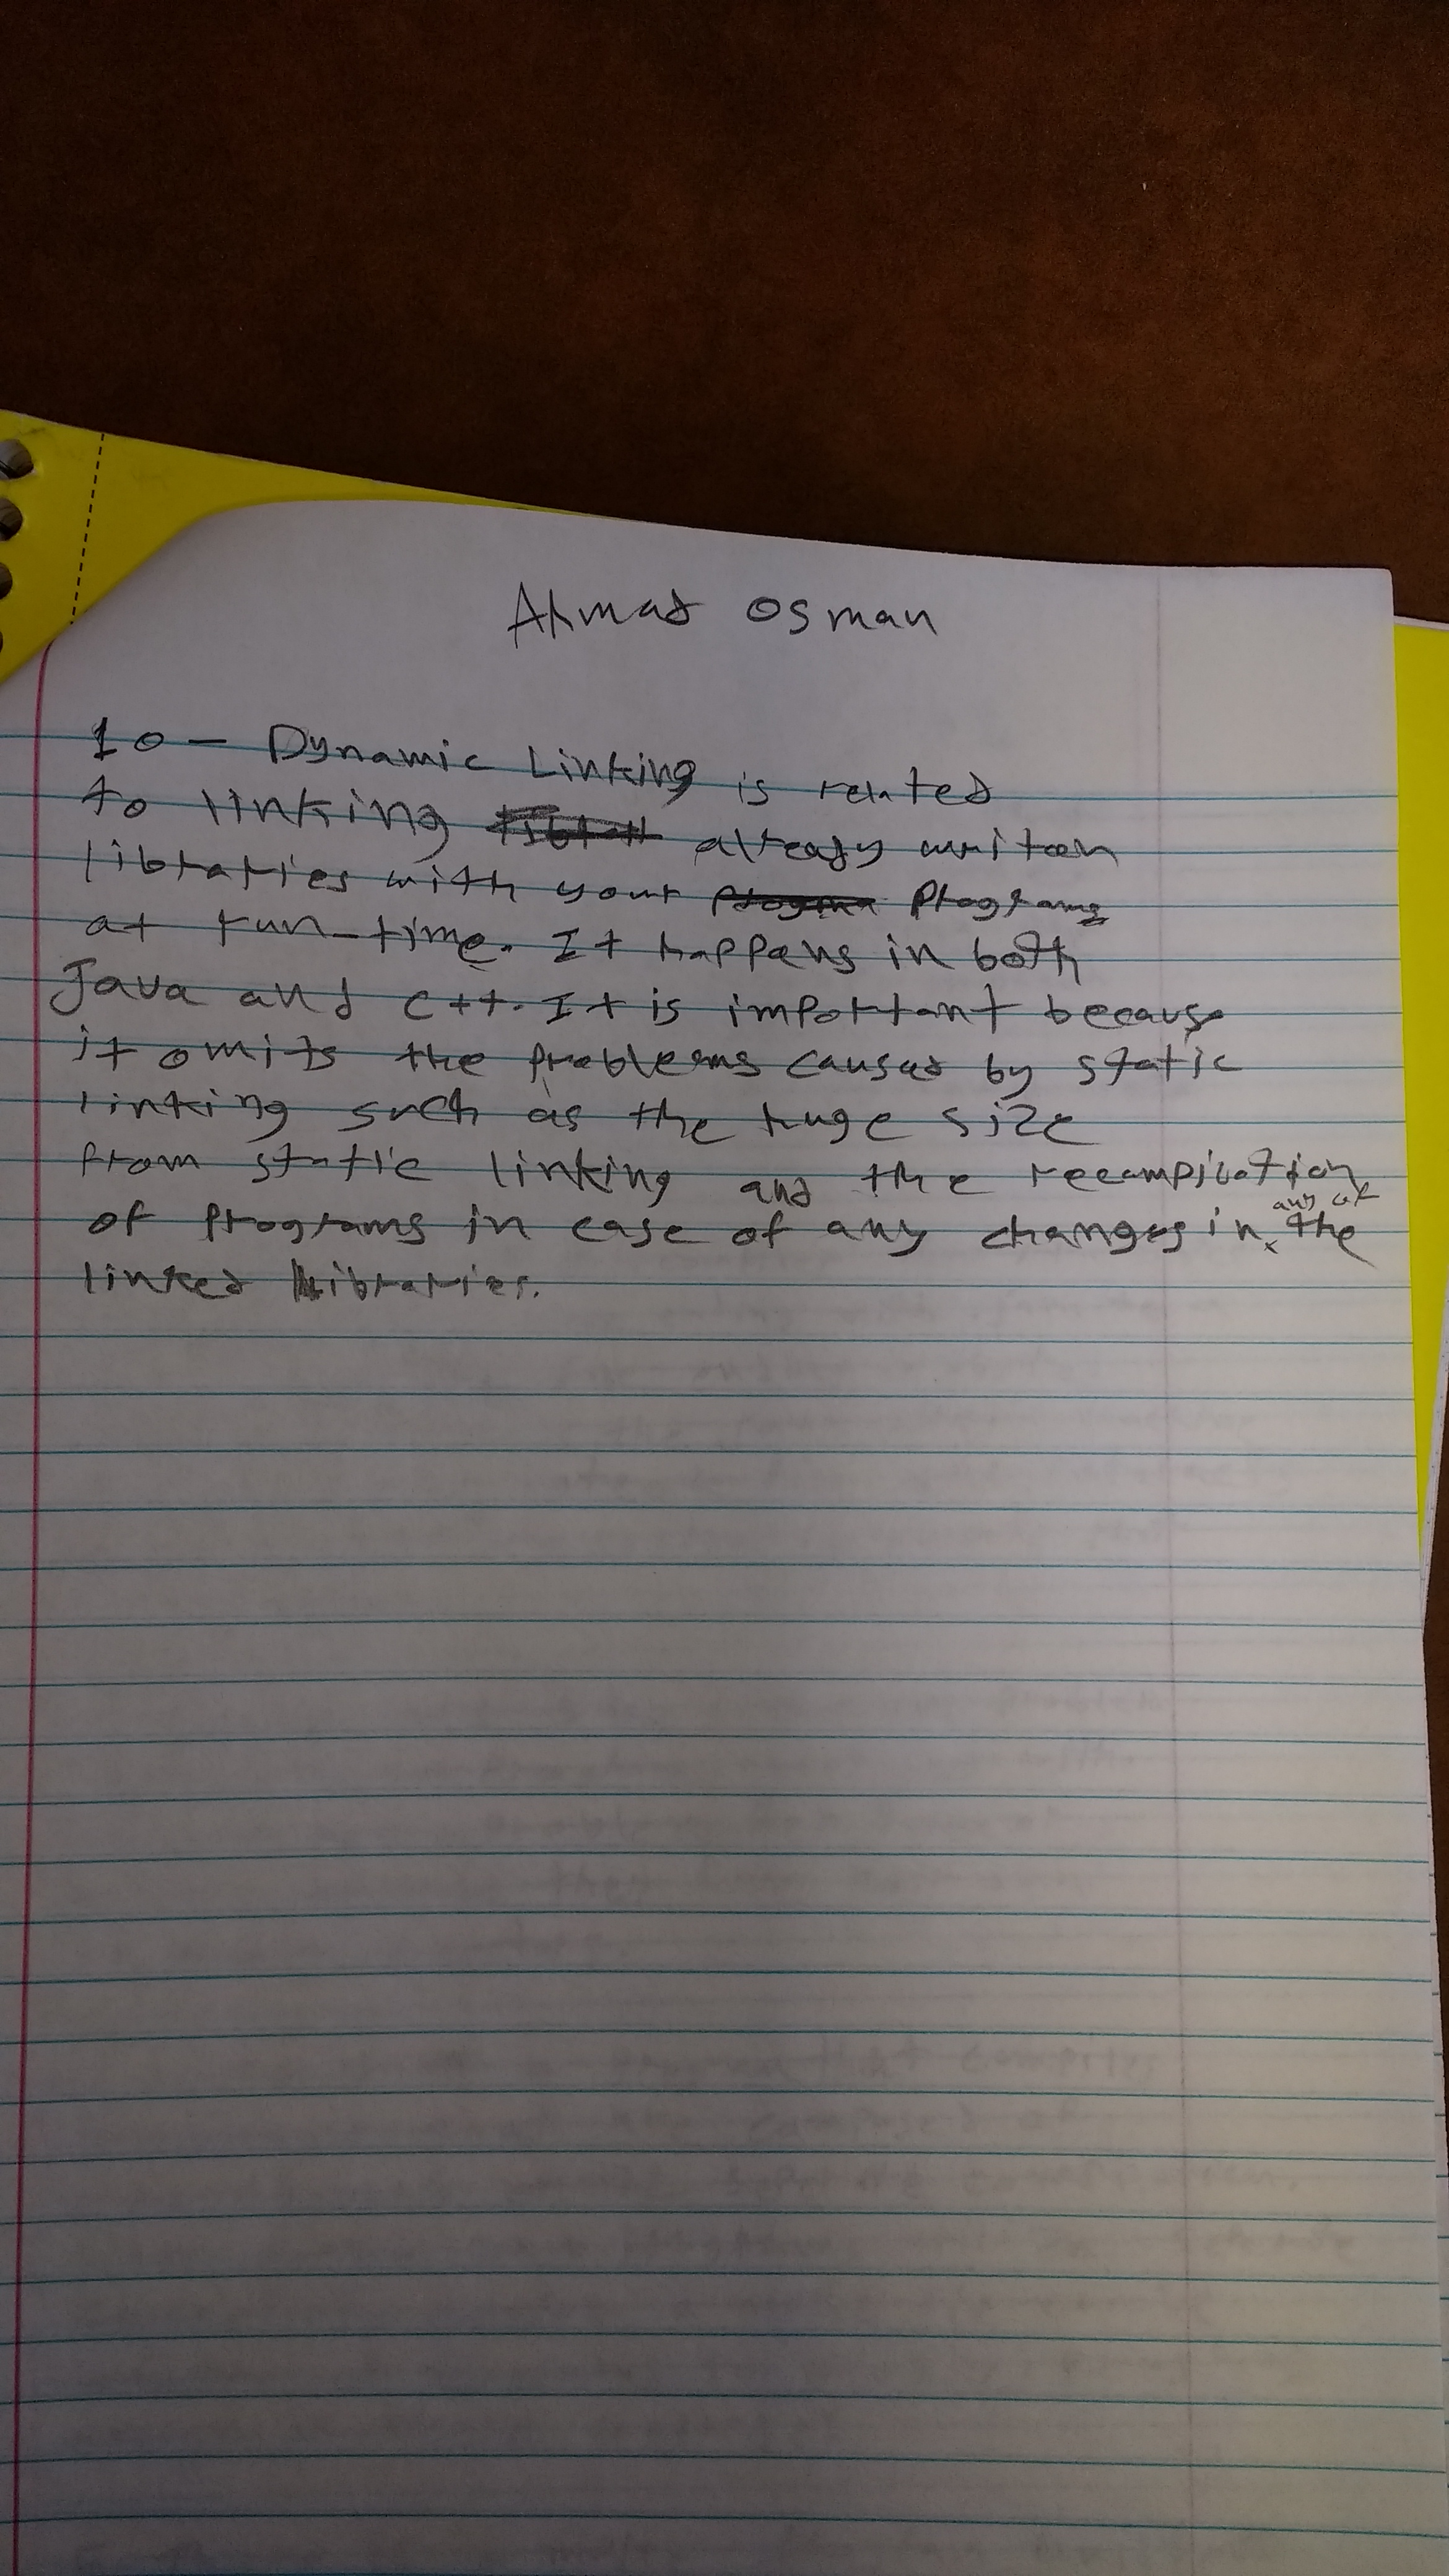 Ahmad Osman
10 - Dynamic Linking is related
to linking already written
libraries with your Programs
at run-time. It happens in both
Java and C++. It is important because
it omits the problems caused by static
linking such as the huge size
from static linking and the recompilation
of programs in case of any changes in any of the
linked libraries.